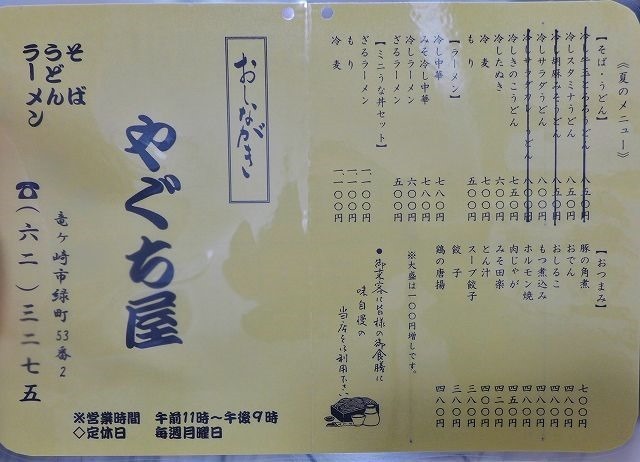 《夏のメニュー》
【そば・うどん】
冷し牛玉とろろうどん 八五〇円
冷しスタミナうどん 八五〇円
冷し胡麻みそうどん 八五〇円
冷しサラダうどん 八〇〇円
冷しサラダカレーうどん 八〇〇円
冷しきのこうどん 七五〇円
冷したぬき 六〇〇円
冷麦 七〇〇円
もり 五〇〇円
【ラーメン】
冷し中華 七八〇円
みそ冷し中華 七八〇円
冷しラーメン 六〇〇円
ざるラーメン 五〇〇円
【ミニうな丼セット】
ざるラーメン 一一〇〇円
もり 一一〇〇円
冷麦
【おつまみ】
豚の角煮 七〇〇円
おでん 四八〇円
おしるこ 四八〇円
もつ煮込み 四八〇円
ホルモン焼 四八〇円
肉じゃが
みそ田楽 四二〇円
とん汁 四〇〇円
スープ餃子 三八〇円
餃子 三八〇円
鶏の唐揚 四八〇円
※大盛は一〇〇円増しです。
●御来客に皆様の御食膳に
味自慢の
当店を御利用下さい
おしながき
やぐち屋
そば
うどん
ラーメン
竜ヶ崎市緑町53番2
☎(六二)三二七五
※営業時間 午前11時～午後9時
◇定休日 毎週月曜日